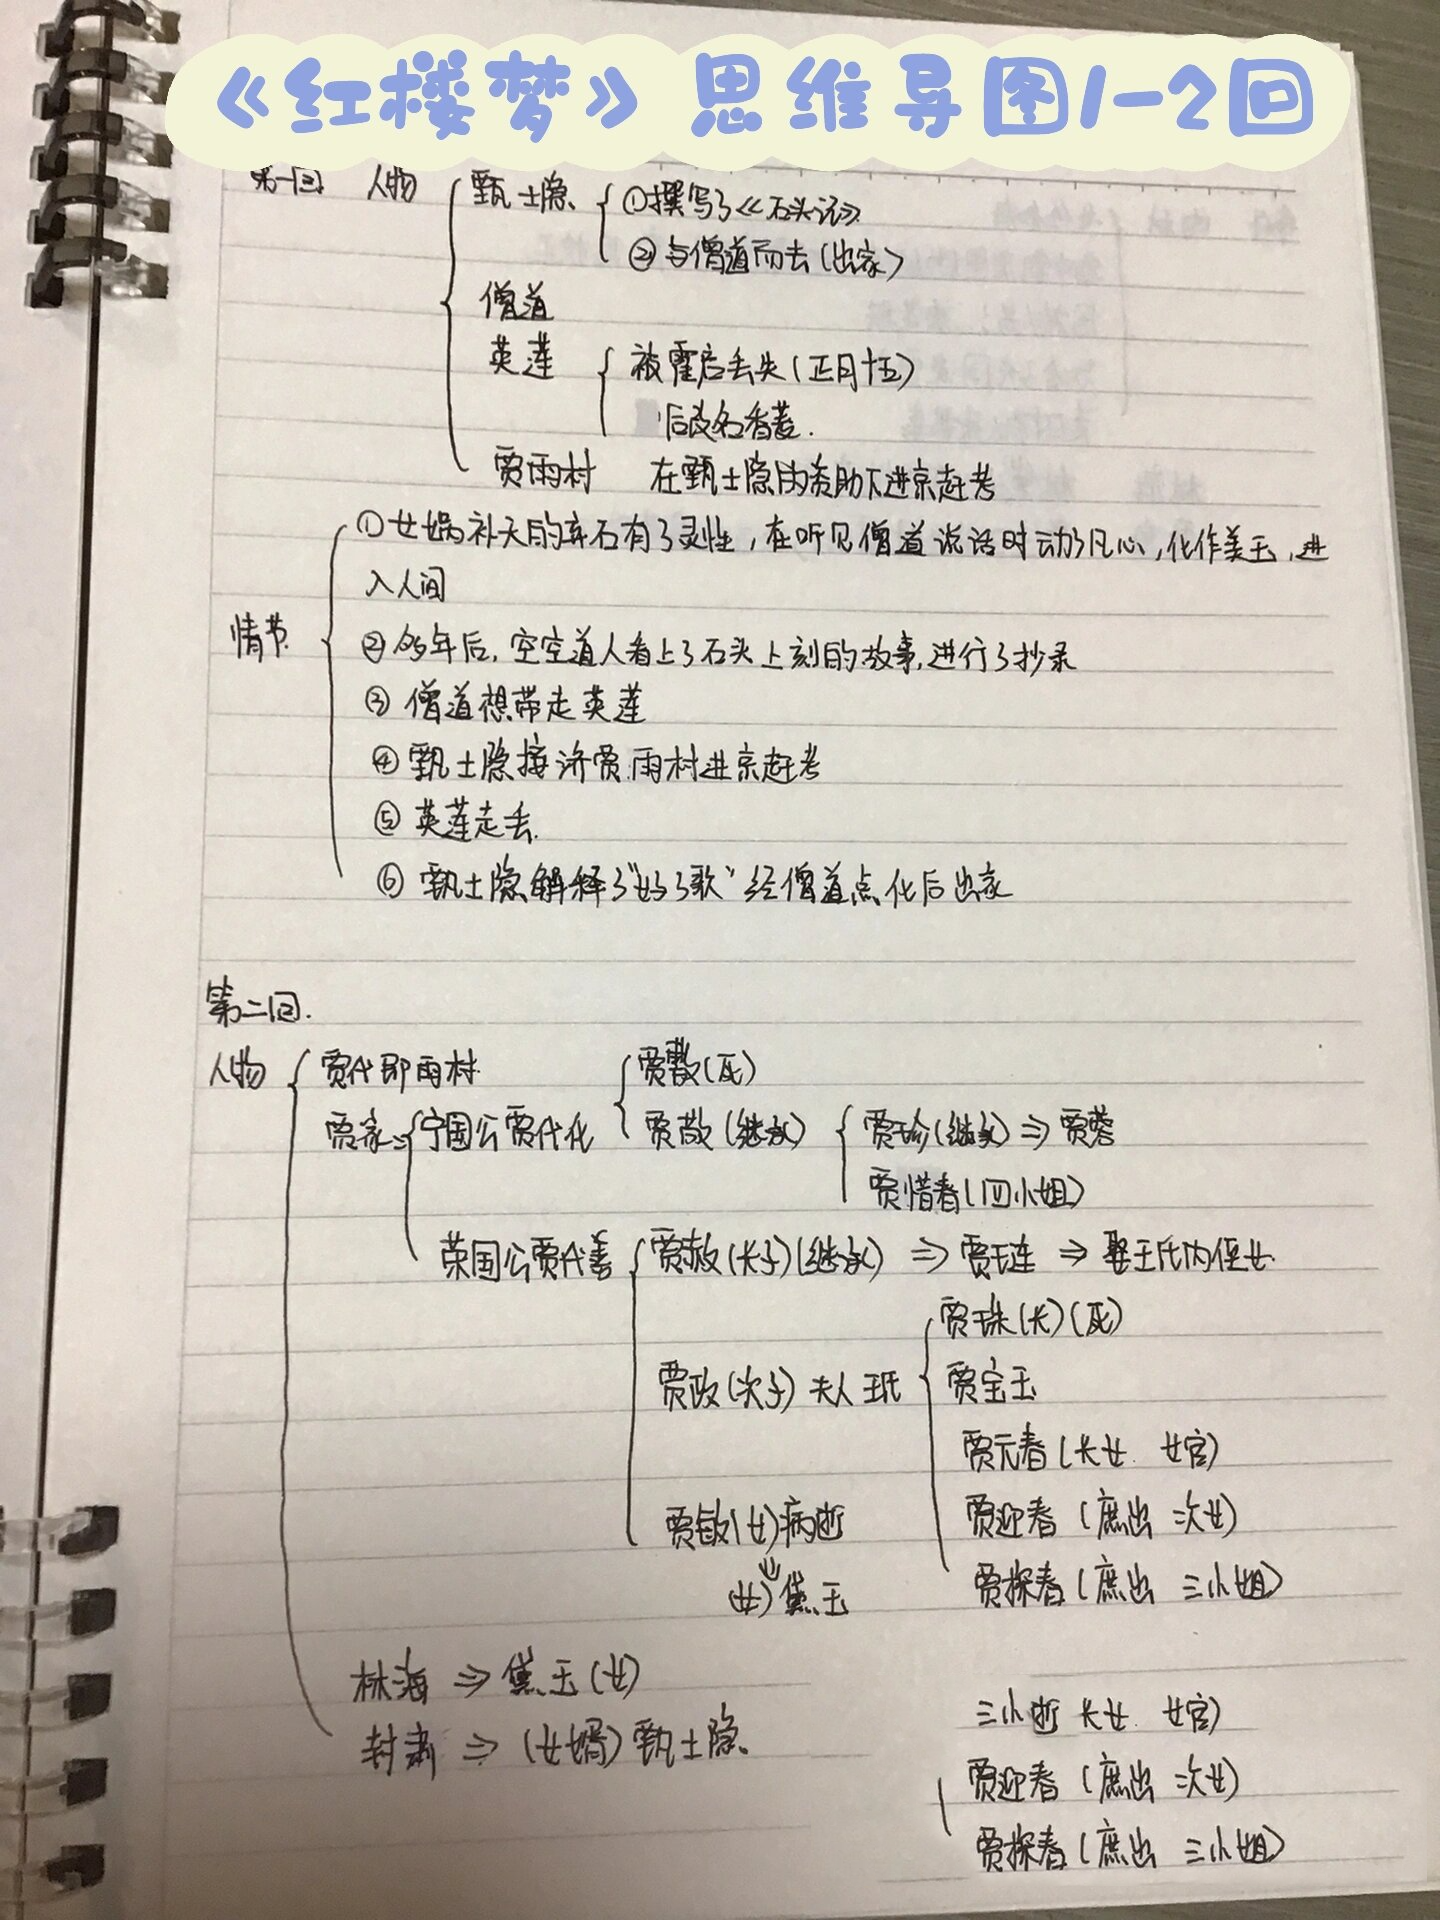 《红楼梦》思维导图1-2回
第一回 人物 甄士隐 ①撰写了《石头记》
②与僧道而去(出家)
僧道
英莲 被霍启丢失(正月十五)
后改名香菱.
贾雨村 在甄士隐的资助下进京赶考
情节
①女娲补天的弃石有了灵性,在听见僧道说话时动了凡心,化作美玉,进
入人间
②多年后,空空道人看上了石头上刻的故事,进行了抄录
③僧道想带走英莲
④甄士隐接济贾雨村进京赶考
⑤英莲走丢.
⑥甄士隐解释了"好了歌"经僧道点化后出家
第二回.
人物 贾代即雨村 贾敷(死)
贾家⇒宁国公贾代化 贾敬(继承) 贾珍(继承)⇒贾蓉
贾惜春(四小姐)
荣国公贾代善 贾赦(长子)(继承)⇒贾琏⇒娶王氏内侄女.
贾珠(长)(死)
贾政(次子)夫人王氏 贾宝玉
贾元春(长女.女官)
贾敏(女)病逝 贾迎春(庶出 二次女)
⇓ 贾探春(庶出 三小姐)
(女)黛玉
林海⇒黛玉(女)
三小逝 长女.女官)
封肃⇒(女婿)甄士隐
贾迎春(庶出 二次女)
贾探春(庶出 三小姐)